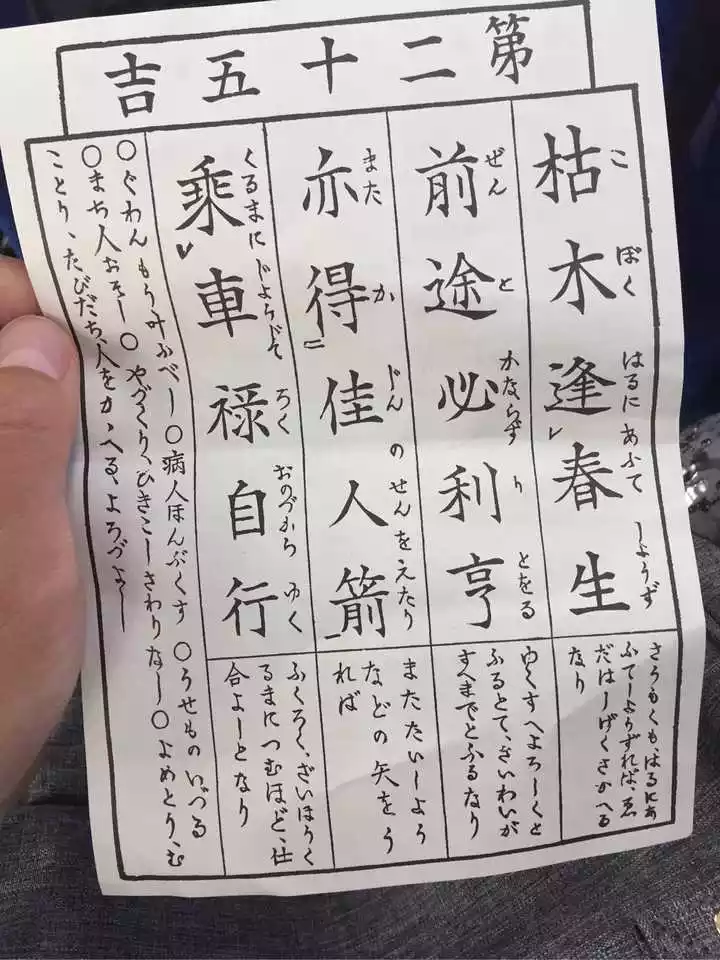 第二十五吉
こ ぼく はるに あふて しようず
枯木逢レ春生
さうもくも、はるにあ
ふてしようずれば、ゑ
だはしげくさかへる
なり
ぜん と かならず り とをる
前途必利亨
ゆくすへよろしくと
ふるとて、さいわいが
すへまでとふるなり
また か じん の せんをえたり
亦得二佳人箭一
またたいしよう
などの矢をう
れば
くるまに じようじて ろく おのづから ゆく
乗レ車禄自行
ふくろく、ざいほうく
るまにつむほど、仕
合よしとなり
〇ぐわん もう叶ふべし 〇病人ほんぶくす 〇うせもの いづる
〇まち人おそし〇 やづくり、ひきこしさわりなし〇よめとり、む
ことり、たびだち、人をかゝへる、よろづよし